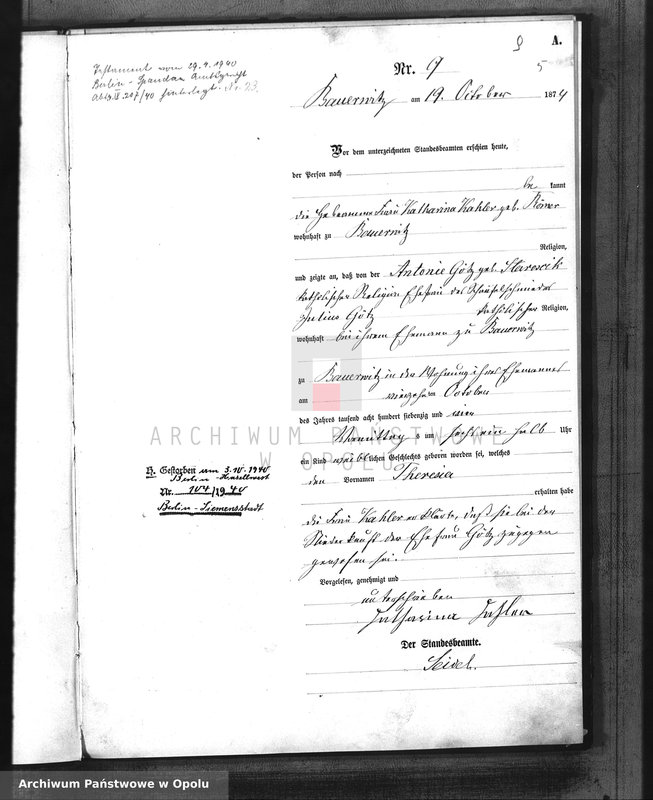 Testament vom 29.4.1940
Berlin-Spandau Amtsgericht
hinterlegt. Nr. 23.
9
A.
5
Nr. 9
Bauerwitz am 19. October 1874
Vor dem unterzeichneten Standesbeamten erschien heute,
der Person nach
be kannt
die Hebeamme Frau Katharina Kahler geb. Römer
wohnhaft zu Bauerwitz
Religion,
und zeigte an, daß von der Antonie Götz geb.
katholischer Religion Ehefrau des Schaufelschmiedes
Julius Götz katholischer Religion,
wohnhaft bei ihrem Ehemann zu Bauerwitz
zu Bauerwitz in der Wohnung ihres Ehemannes
am vierzehnten October
des Jahres tausend acht hundert siebenzig und vier
Vormittag s um halb Uhr
ein Kind weiblichen Geschlechts geboren worden sei, welches
den Vornamen Theresia
erhalten habe
die Frau Kahler erklärte, daß sie bei der
Niederkunft der Ehefrau Götz zugegen
gewesen sei.
Vorgelesen, genehmigt und
unterschrieben
Catharina Kahler
Der Standesbeamte.
Seidel.
H. Gestorben am 3.10.1940
Berlin-Haselhorst
Nr. 104/1940
Berlin-Siemensstadt
ARCHIWUM PAŃSTWOWE
W OPOLU
Archiwum Państwowe w Opolu